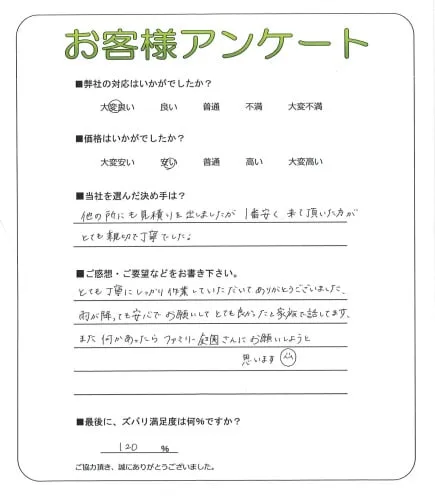 お客様アンケート
■弊社の対応はいかがでしたか？
大変良い 良い 普通 不満 大変不満
■価格はいかがでしたか？
大変安い 安い 普通 高い 大変高い
■当社を選んだ決め手は？
他の所にも見積りを出しましたが 1番安く 来て頂いた方が
とても親切で丁寧でした。
■ご感想・ご要望などをお書き下さい。
とても丁寧にしっかり作業していただいてありがとうございました、
雨が降っても安心で お願いして とても良かったと家族で話してます、
また 何かあったら ファミリー庭園さんにお願いしようと
思います
■最後に、ズバリ満足度は何％ですか？
120 ％
ご協力頂き、誠にありがとうございました。